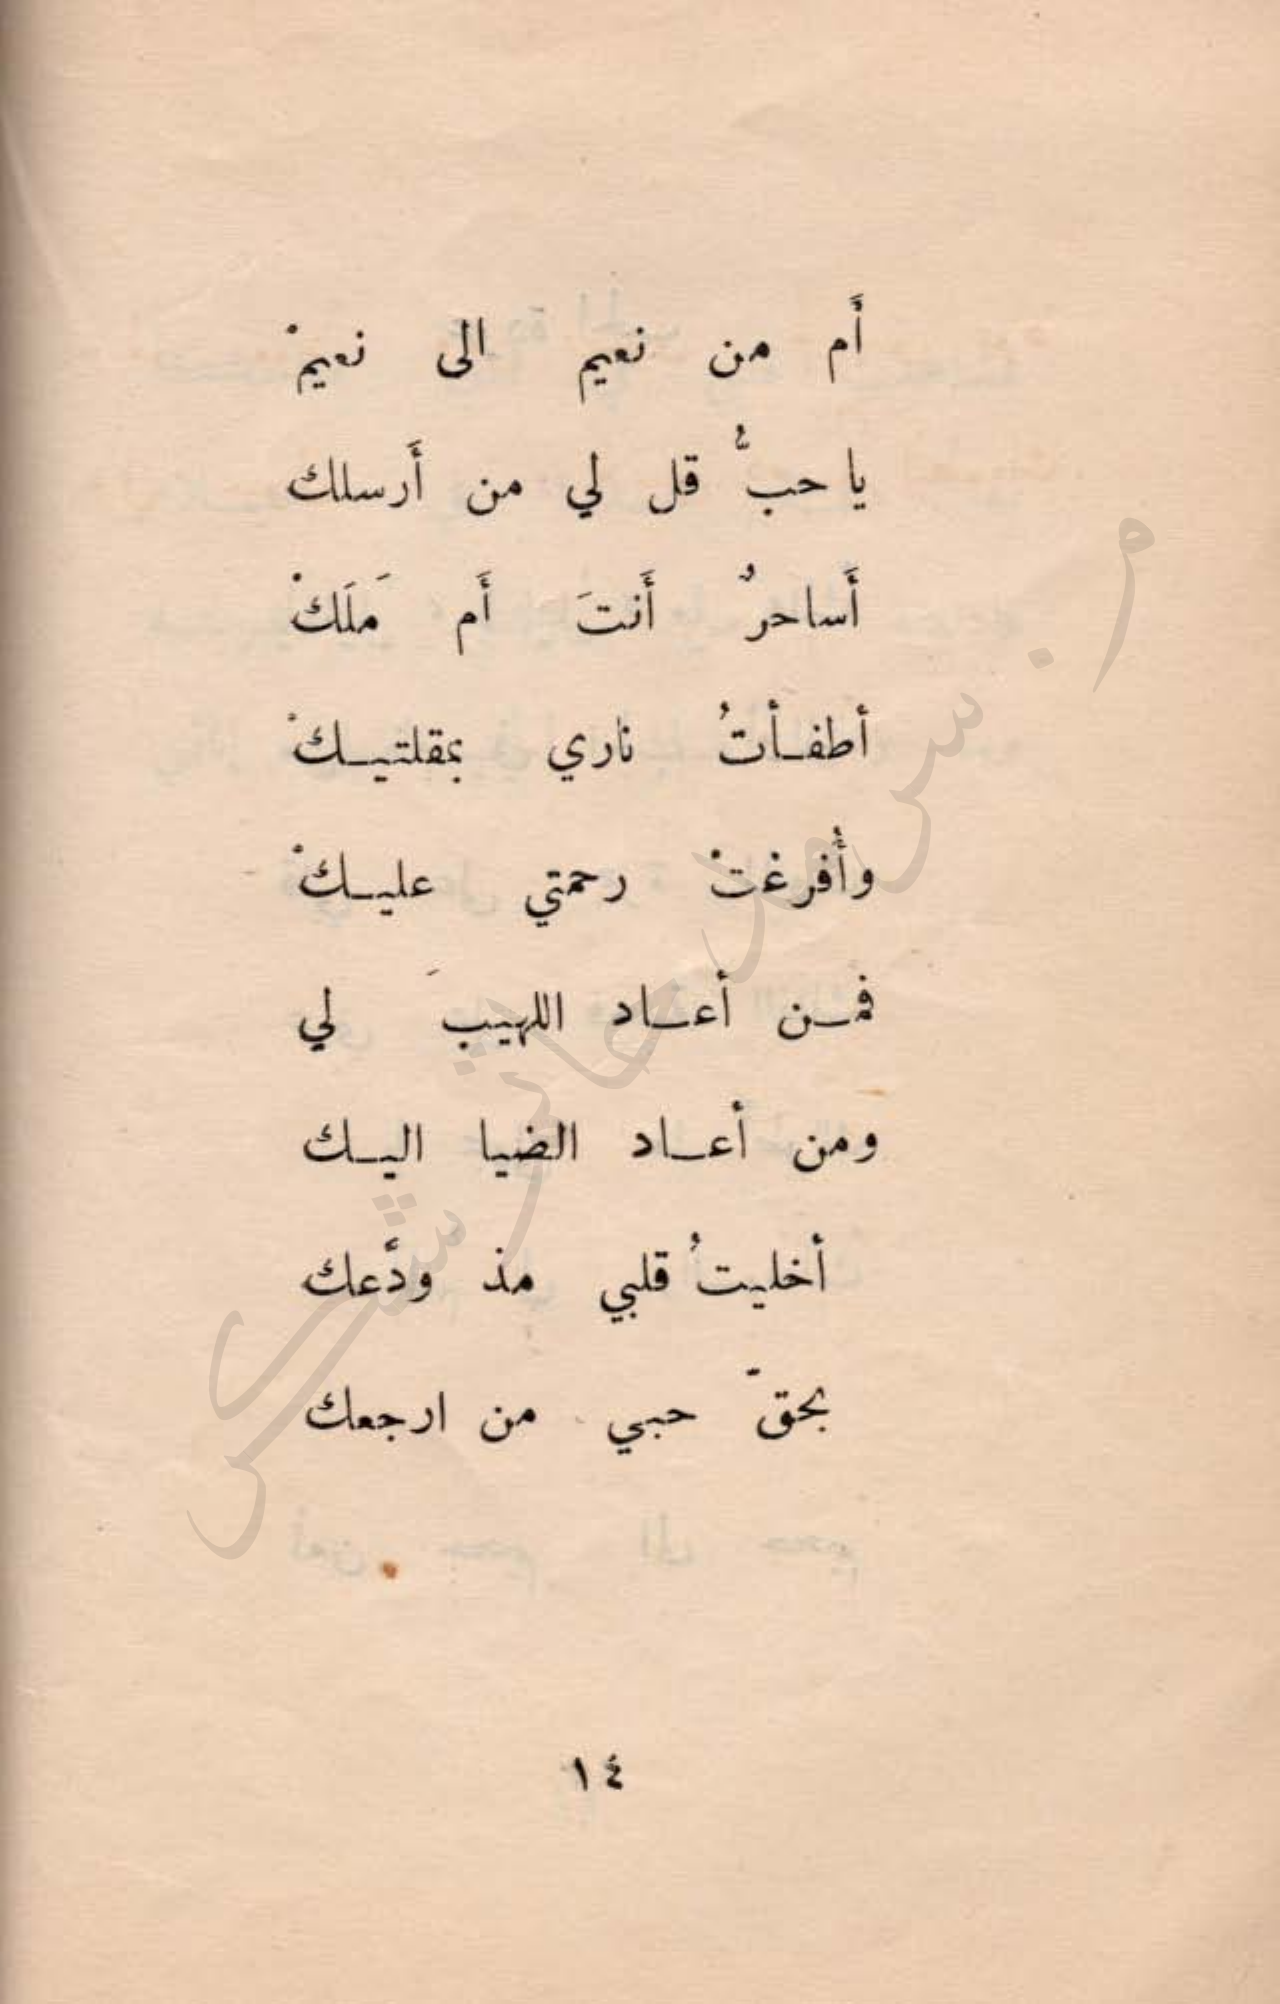 أَم من نعيم الى نعيمْ
يا حبُّ قل لي من أَرسلك
أَساحرٌ أَنتَ أَم مَلَكْ
أطفـأتُ ناري بمقلتيـكْ
وأَفرغتْ رحمتي عليـكْ
فمـن أعـاد اللهيبَ لي
ومن أعـاد الضيا اليـك
أخليتُ قلبي مذ ودَّعك
بحقّ حبي من ارجعك
١٤